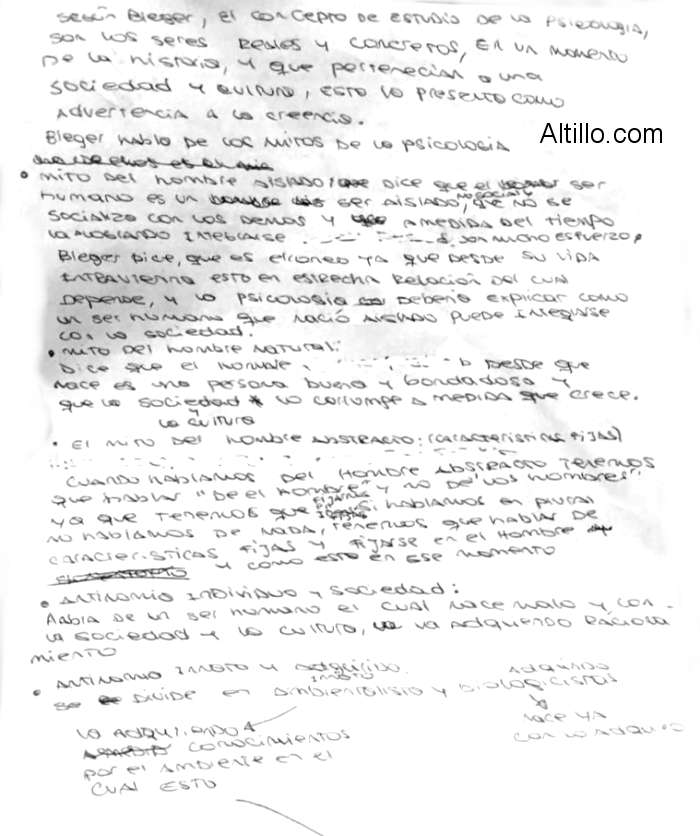 según Bleger, el concepto de estudio de la psicología,
son los seres reales y concretos, en un momento
de la historia, y que pertenecian a una
sociedad y cultura, esto lo presento como
advertencia a la creencia.
Altillo.com
Bleger hablo de los mitos de la psicologia
• mito del hombre aislado, dice que el ser
humano es un ser aislado, no social, que no se
socializo con los demas y a medida del tiempo
con mucho esfuerzo,
Bleger dice, que es erroneo ya que desde su vida
intrauterina esto en estrecha relacion del cual
depende, y la psicologia deberia explicar como
un ser humano que nacio aislado puede integrarse
con la sociedad.
• mito del hombre natural:
Dice que el hombre, desde que
nace es una persona buena y bondadosa y
que la sociedad y la cultura lo corrumpe a medida que crece.
• El mito del hombre abstracto: (características fijas)
cuando hablamos del hombre abstracto tenemos
que hablar "de el hombre" y no de "los hombres",
ya que tenemos que fijarnos si hablamos en plural
no hablamos de nada, tenemos que hablar de
características fijas y fijarse en el hombre
y como esto en ese momento
• antinomia individuo y sociedad:
habla de un ser humano el cual nace malo y con
la sociedad y la cultura, va adquiendo raciona
miento
• antinomia innato y adquirido.
se divide en ambientalista y biologicistas
innato
adquirido
lo adquiriendo
conocimientos
por el ambiente en el
cual esto
nace ya
con lo